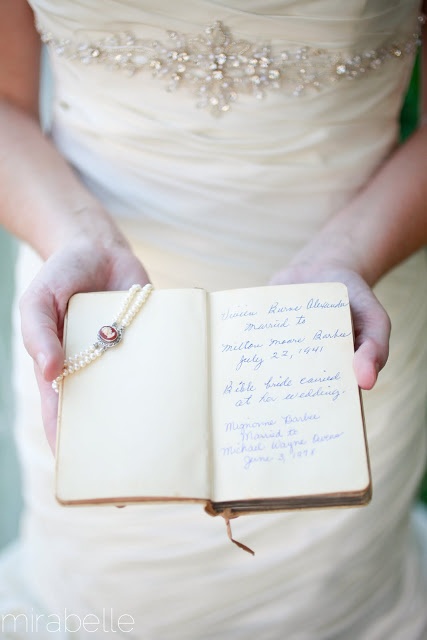 Vivien Burns Alexander
Married to
Milton Moore Barbee
July 27, 1941
Bible bride carried
at her wedding.
Mignonne Barbee
Married to
Michael Wayne
June 3, 1978
mirabelle